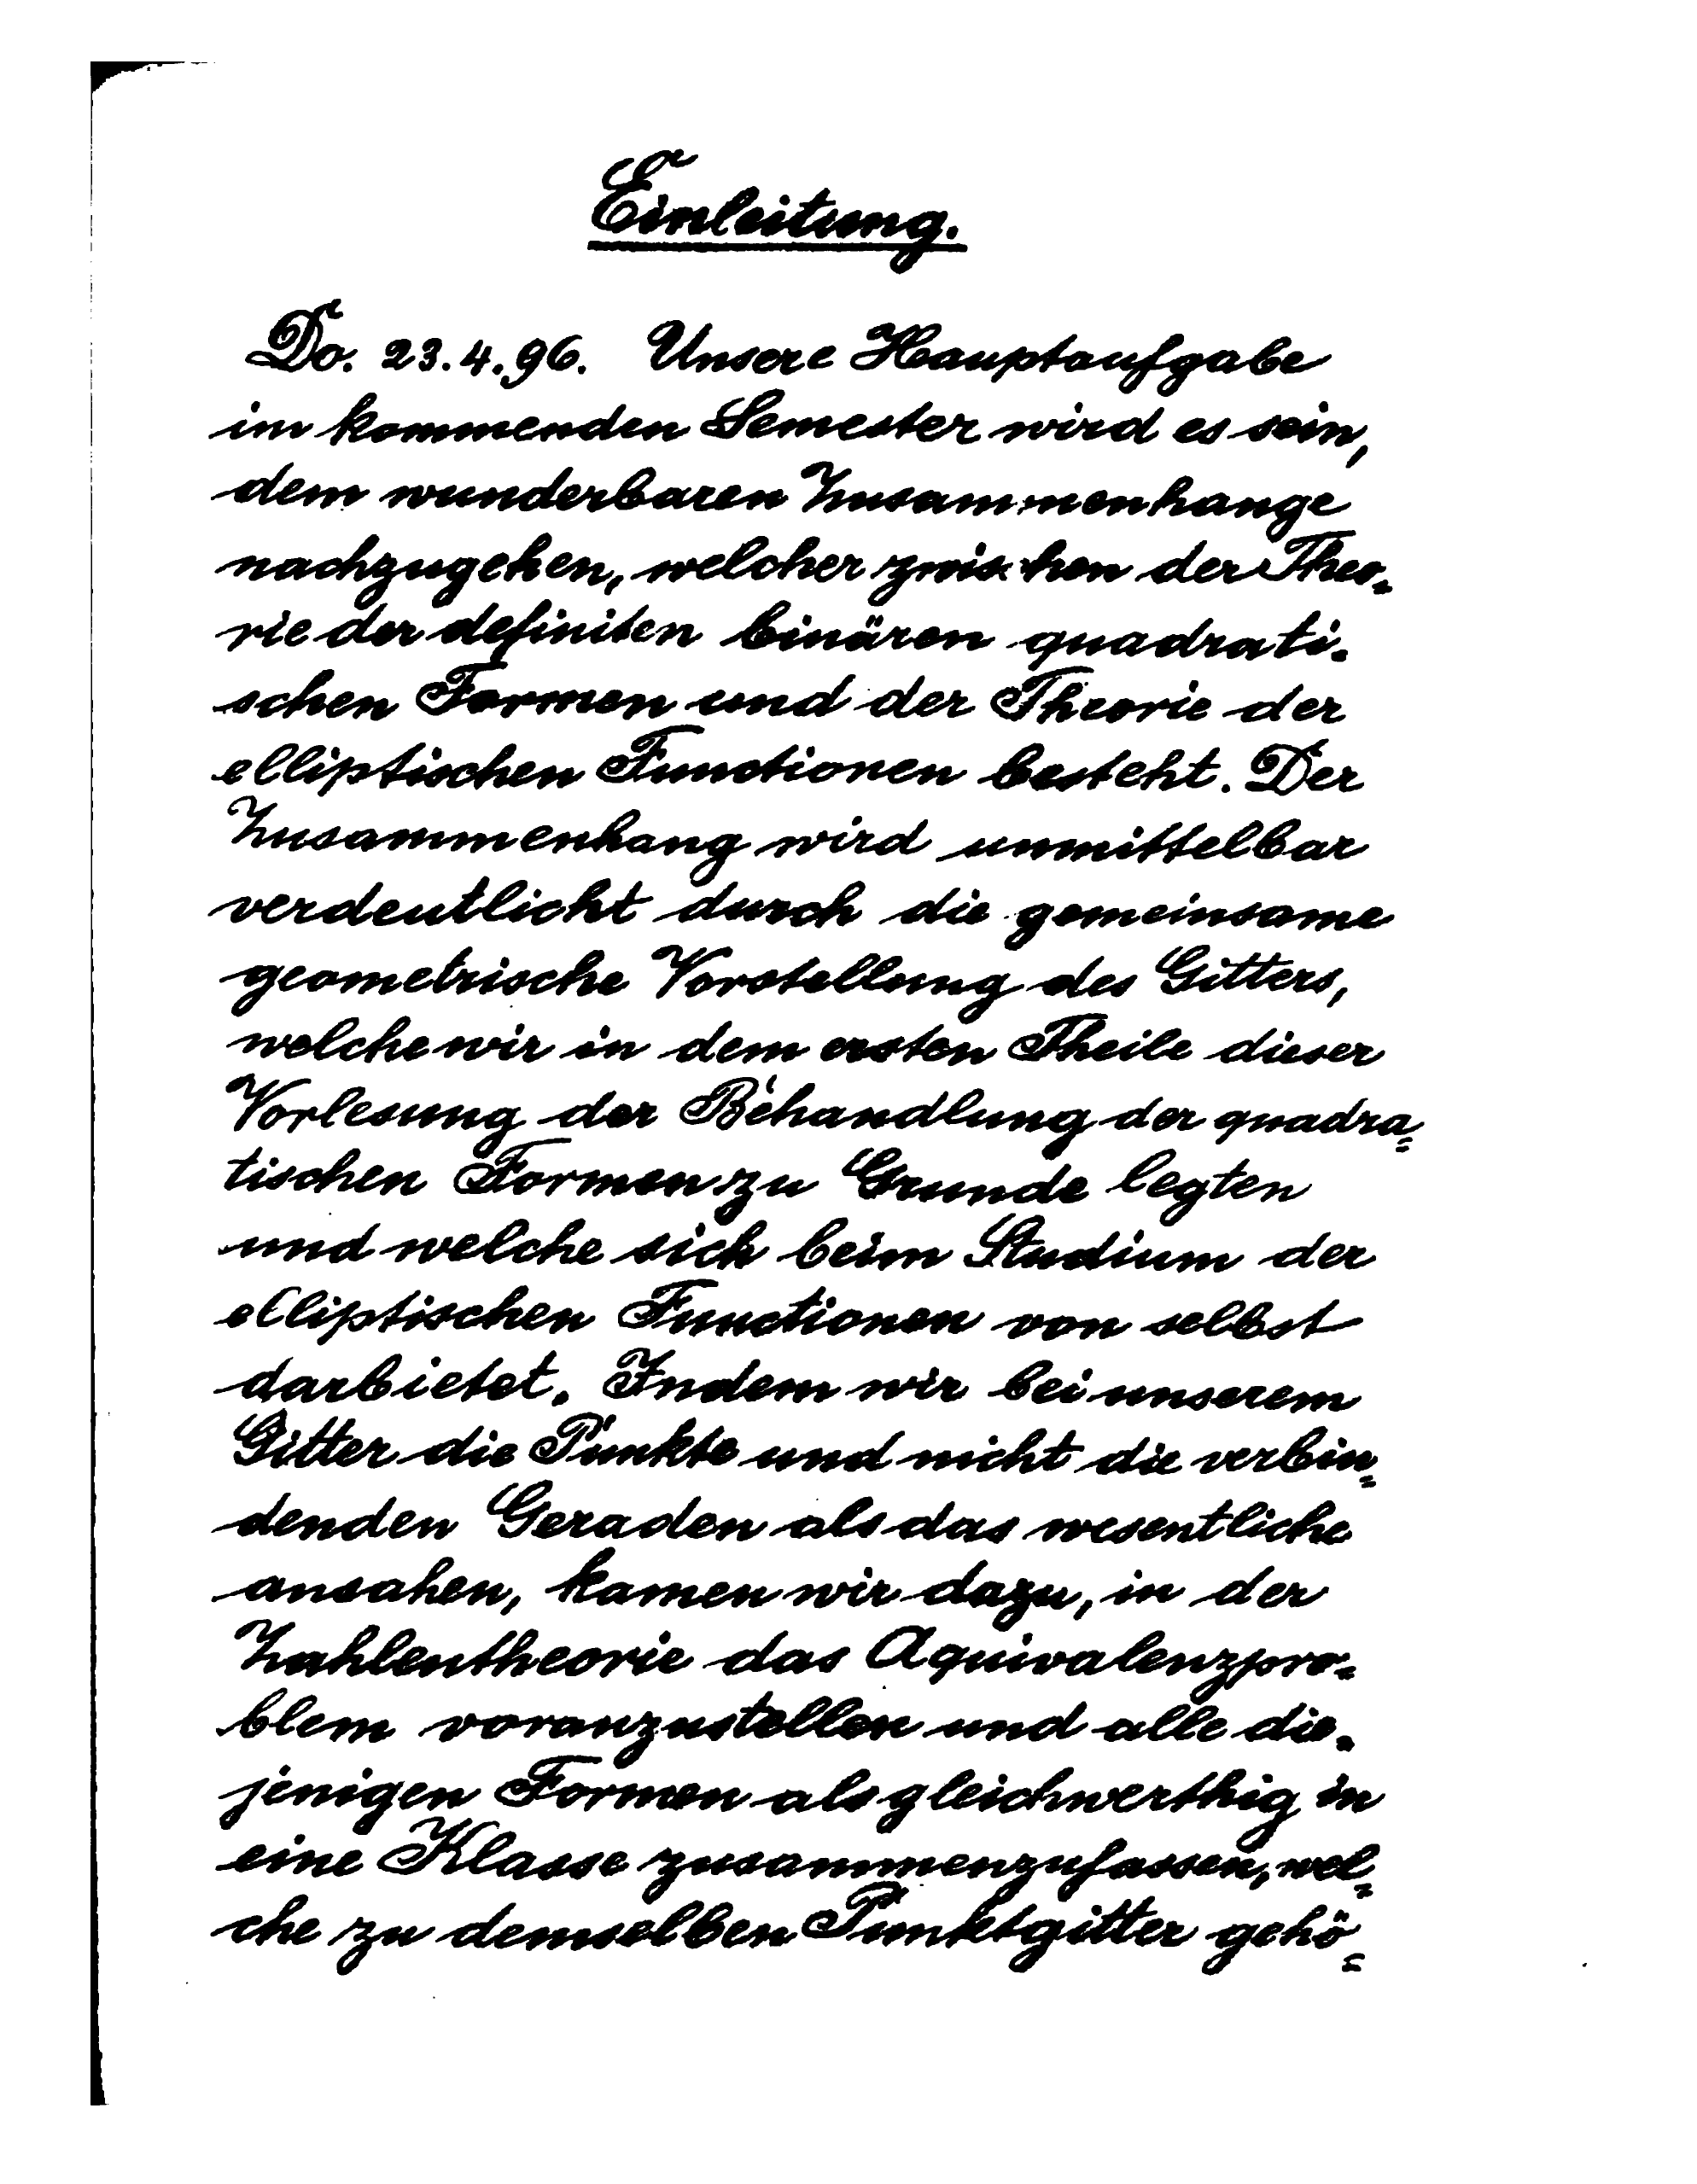 Einleitung.
Do. 23.4.96. Unsere Hauptaufgabe
im kommenden Semester wird es sein,
dem wunderbaren Zusammenhange
nachzugehen, welcher zwischen der Theo-
rie der definiten binären quadrati-
schen Formen und der Theorie der
elliptischen Functionen besteht. Der
Zusammenhang wird unmittelbar
verdeutlicht durch die gemeinsame
geometrische Vorstellung des Gitters,
welche wir in dem ersten Theile dieser
Vorlesung der Behandlung der quadra=
tischen Formen zu Grunde legten
und welche sich beim Studium der
elliptischen Functionen von selbst
darbietet. Indem wir bei unserem
Gitter die Punkte und nicht die verbin=
denden Geraden als das wesentliche
ansahen, kamen wir dazu, in der
Zahlentheorie das Aquivalenzpro-
blem voranzustellen und alle die-
jenigen Formen als gleichwerthig in
eine Klasse zusammenzufassen, wel=
che zu demselben Punktgitter gehö=